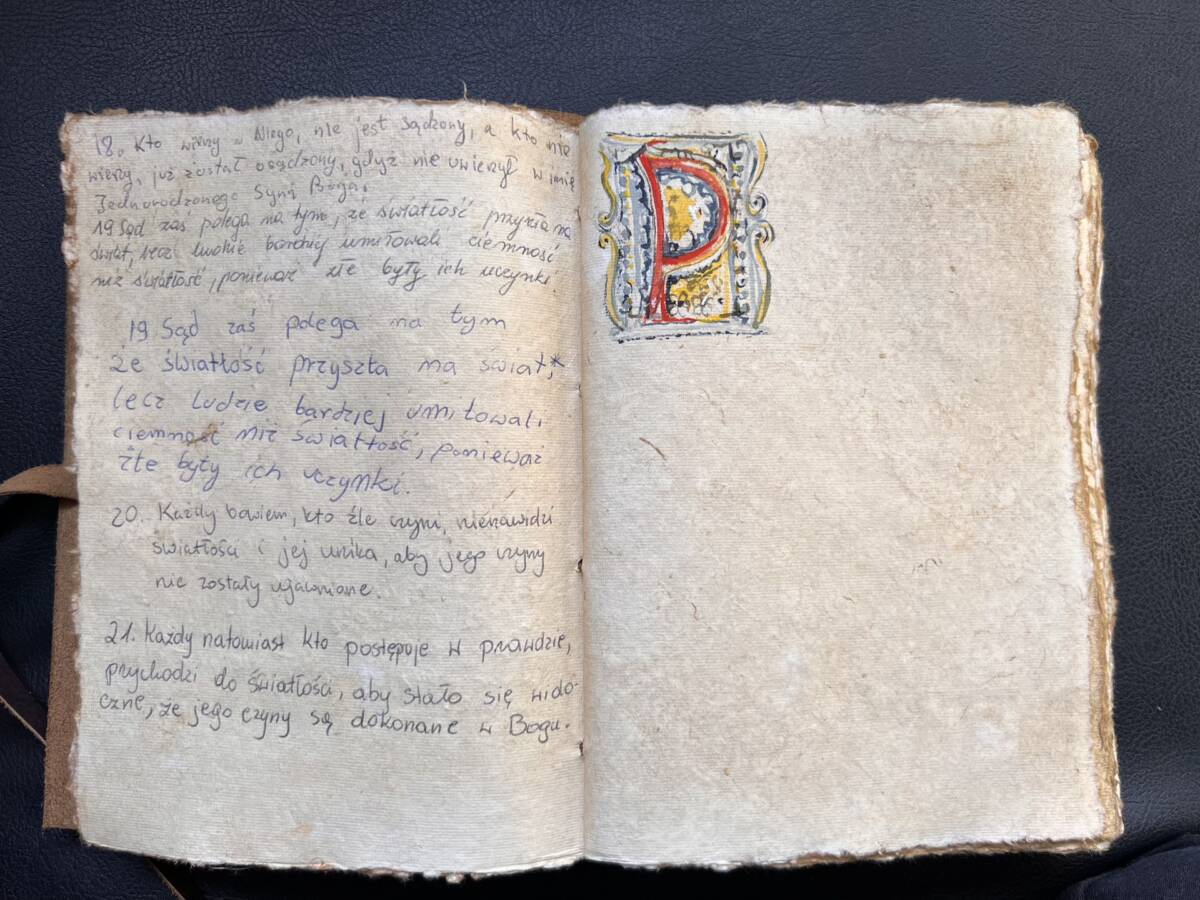 18. Kto wierzy w Niego, nie jest sądzony, a kto nie
wierzy, już został osądzony, gdyż nie uwierzył w imię
Jednorodzonego Syna Boga.
19 Sąd zaś polega na tym, że światłość przyszła na
świat, lecz ludzie bardziej umiłowali ciemność
niż światłość, ponieważ złe były ich uczynki.
19 Sąd zaś polega na tym
że światłość przyszła na świat,*
lecz ludzie bardziej umiłowali
ciemność niż światłość, ponieważ
złe były ich uczynki.
20. Każdy bowiem, kto źle czyni, nienawidzi
światłości i jej unika, aby jego czyny
nie zostały ujawnione.
21. Każdy natomiast kto postępuje w prawdzie,
przychodzi do światłości, aby stało się wido-
czne, że jego czyny są dokonane w Bogu.
P